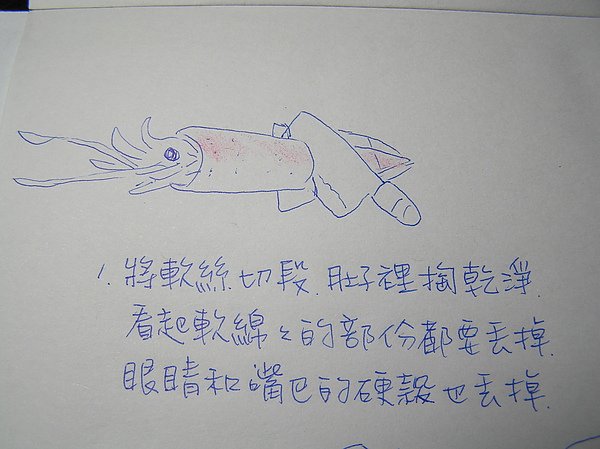 1. 將軟絲切段.肚子裡掏乾淨.
看起軟綿々的部份都要丟掉.
眼睛和嘴巴的硬殼也丟掉.